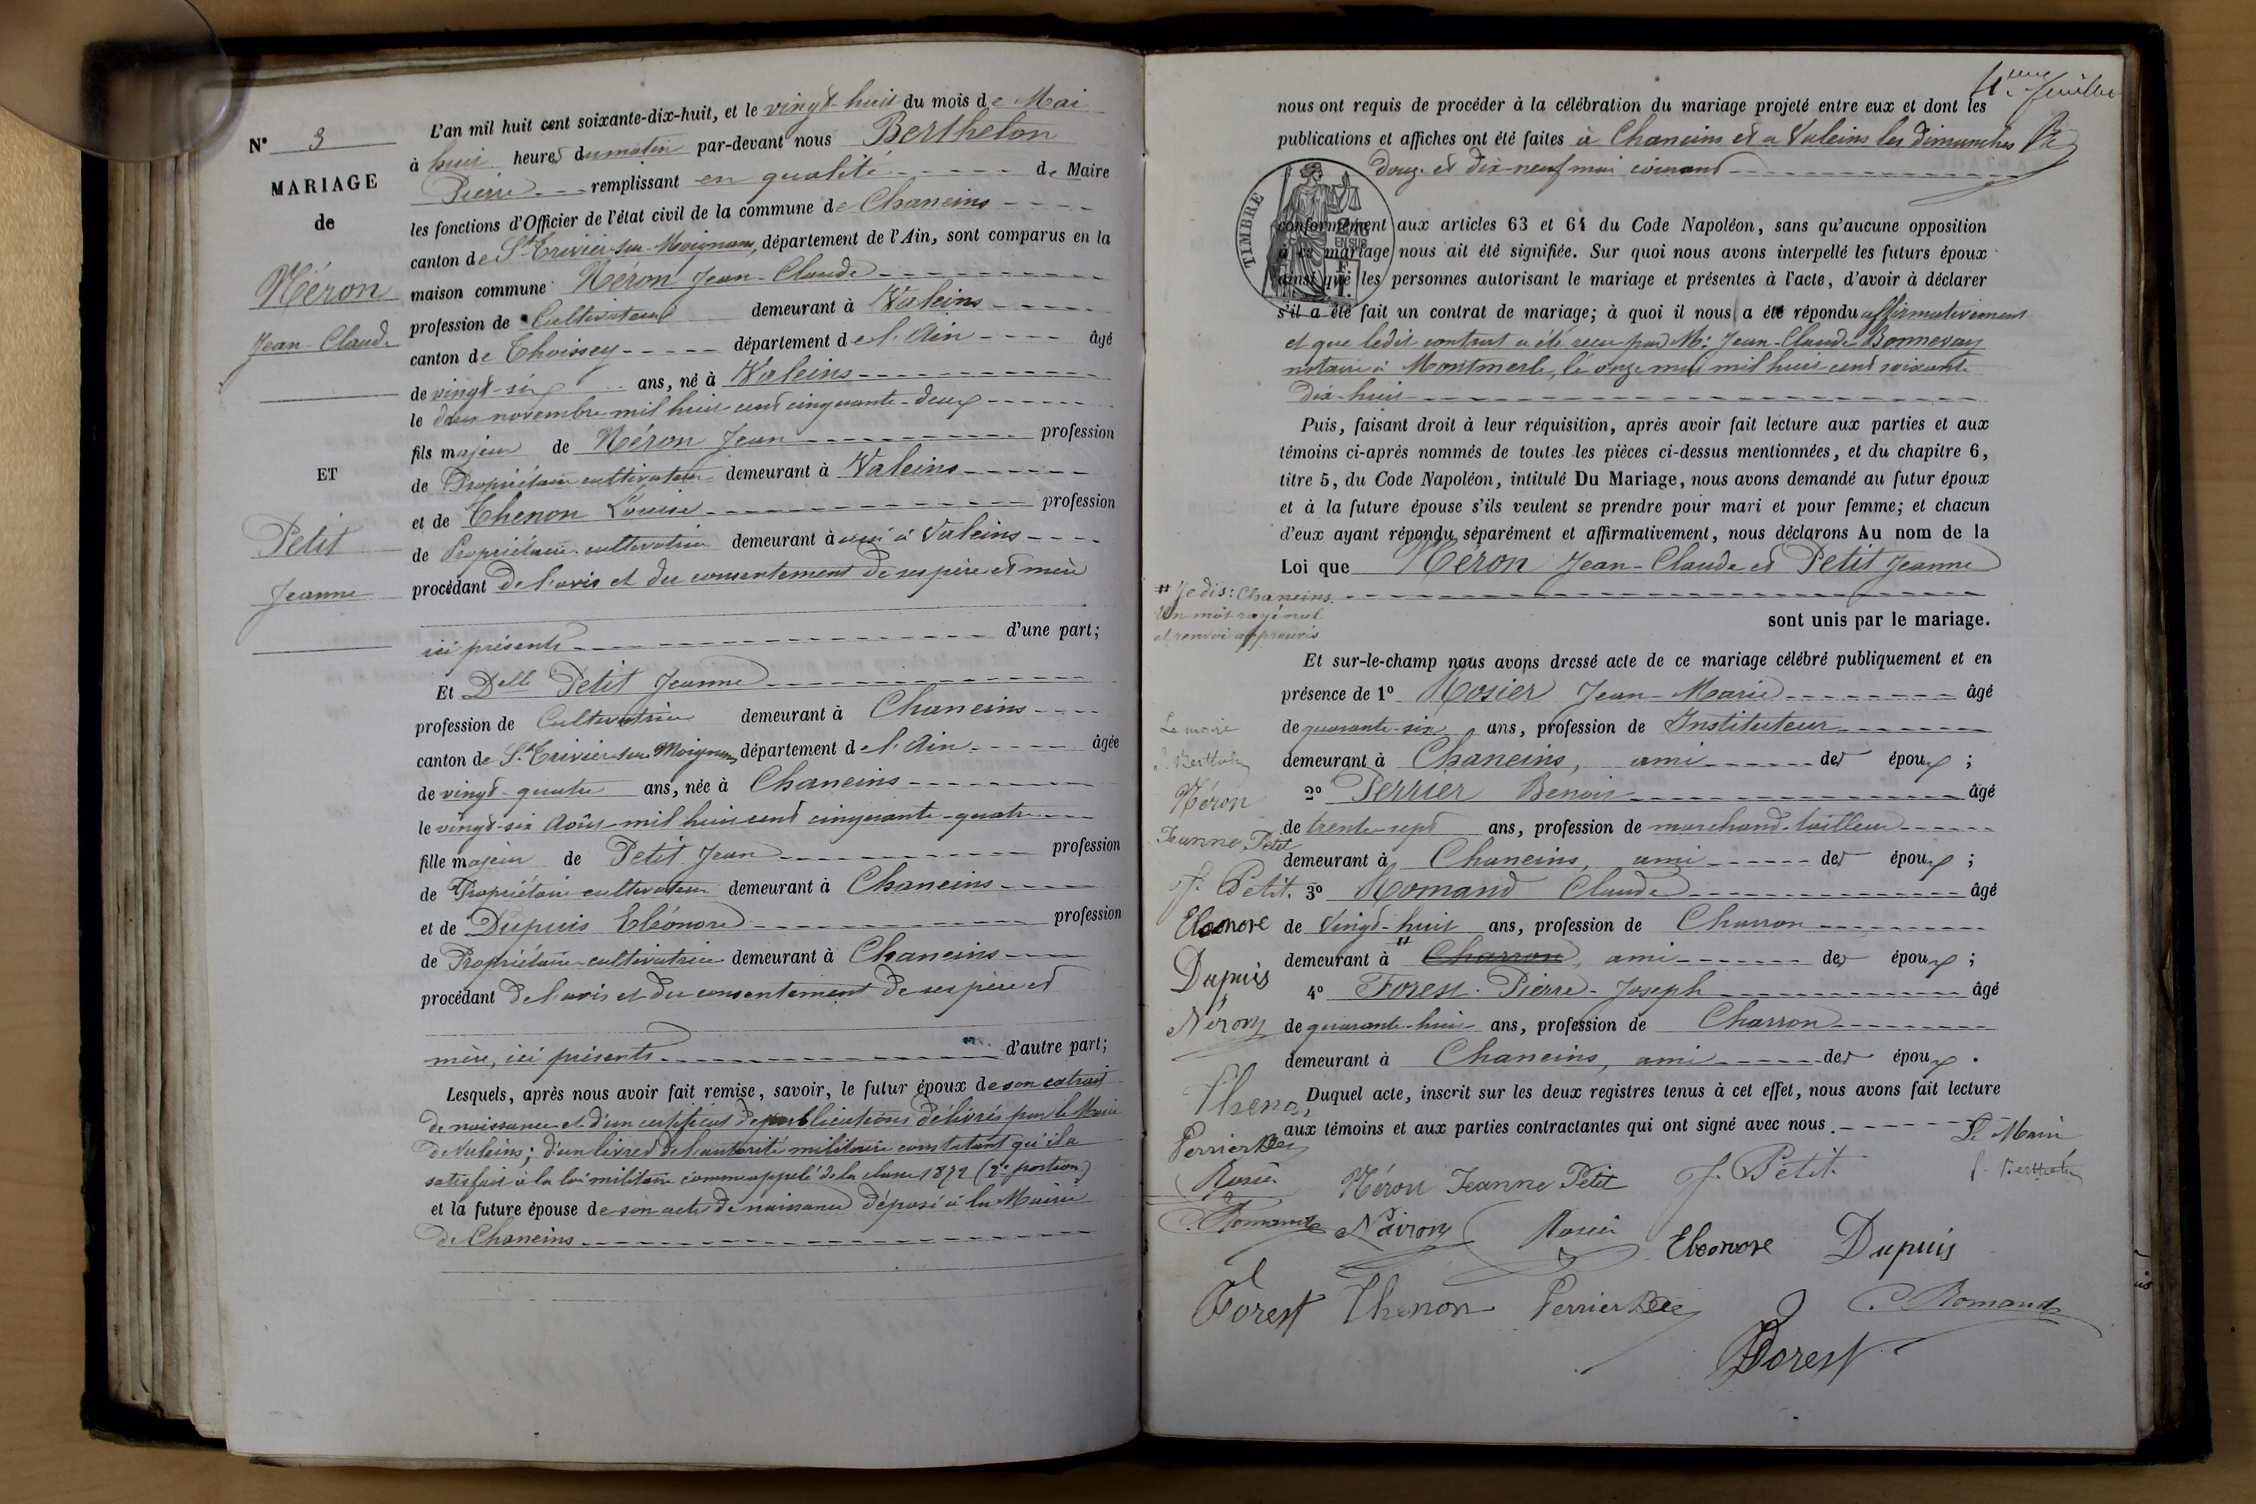 N° 3
MARIAGE
de
Néron
Jean-Claude
ET
Petit
Jeanne
L'an mil huit cent soixante-dix-huit, et le vingt-huit du mois de Mai
à huit heures du matin par-devant nous Berthelon
Pierre remplissant en qualité de Maire
les fonctions d'Officier de l'état civil de la commune de Chaneins
canton de St Trivier-sur-Moignans, département de l'Ain, sont comparus en la
maison commune Néron Jean-Claude
profession de Cultivateur demeurant à Valeins
canton de Thoissey département de l'Ain âgé
de vingt-six ans, né à Valeins
le deux novembre mil huit cent cinquante-deux
fils majeur de Néron Jean profession
de Propriétaire cultivateur demeurant à Valeins
et de Thenon Louise profession
de Propriétaire cultivatrice demeurant à aussi à Valeins
procédant de l'avis et du consentement de ses père et mère
ici présents d'une part;
Et Delle Petit Jeanne
profession de Cultivatrice demeurant à Chaneins
canton de St Trivier-sur-Moignans département de l'Ain âgée
de vingt-quatre ans, née à Chaneins
le vingt-six Août mil huit cent cinquante-quatre
fille majeur de Petit Jean profession
de Propriétaire cultivateur demeurant à Chaneins
et de Dupuis Eléonore profession
de Propriétaire-cultivatrice demeurant à Chaneins
procédant de l'avis et du consentement de ses père et
mère, ici présents d'autre part;
Lesquels, après nous avoir fait remise, savoir, le futur époux de son extrait
de naissance et d'un certificat de publications délivrés par le Maire
de Valeins; d'un livret de l'autorité militaire constatant qu'il a
satisfait à la loi militaire comme appelé de la classe 1872 (2e portion)
et la future épouse de son acte de naissance déposé à la Mairie
de Chaneins
4eme feuillet
nous ont requis de procéder à la célébration du mariage projeté entre eux et dont les
publications et affiches ont été faites à Chaneins et à Valeins les dimanches
douze et dix-neuf mai courant
TIMBRE
conformément aux articles 63 et 64 du Code Napoléon, sans qu'aucune opposition
à ce mariage nous ait été signifiée. Sur quoi nous avons interpellé les futurs époux
ainsi que les personnes autorisant le mariage et présentes à l'acte, d'avoir à déclarer
s'il a été fait un contrat de mariage; à quoi il nous a été répondu affirmativement
et que ledit contrat a été reçu par Me Jean-Claude Bonnevay
notaire à Montmerle, le onze mai mil huit cent soixante
dix-huit
Puis, faisant droit à leur réquisition, après avoir fait lecture aux parties et aux
témoins ci-après nommés de toutes les pièces ci-dessus mentionnées, et du chapitre 6,
titre 5, du Code Napoléon, intitulé Du Mariage, nous avons demandé au futur époux
et à la future épouse s'ils veulent se prendre pour mari et pour femme; et chacun
d'eux ayant répondu séparément et affirmativement, nous déclarons Au nom de la
Loi que Néron Jean-Claude et Petit Jeanne
sont unis par le mariage.
Et sur-le-champ nous avons dressé acte de ce mariage célébré publiquement et en
présence de 1° Rosier Jean-Marie âgé
de quarante-six ans, profession de Instituteur
demeurant à Chaneins, ami des époux;
2° Perrier Benoit âgé
de trente-sept ans, profession de marchand-tailleur
demeurant à Chaneins, ami des époux;
3° Romand Claude âgé
de vingt-huit ans, profession de Charron
demeurant à # Charron, ami des époux;
4° Forest Pierre-Joseph âgé
de quarante-huit ans, profession de Charron
demeurant à Chaneins, ami des époux.
Duquel acte, inscrit sur les deux registres tenus à cet effet, nous avons fait lecture
aux témoins et aux parties contractantes qui ont signé avec nous.
Le Maire
Néron Jeanne Petit J. Petit P. Berthelon
Néirony Rosier Eleonore Dupuis
Thenon Perrier C. Romand
Forest
# Je dis: Chaneins
Un mot rayé nul
et renvoi approuvés
Le maire
P. Berthelon
Néron
Jeanne Petit
J. Petit.
Eleonore
Dupuis
Nérony
Thenon
Perrier
Rosier
C. Romand
Forest